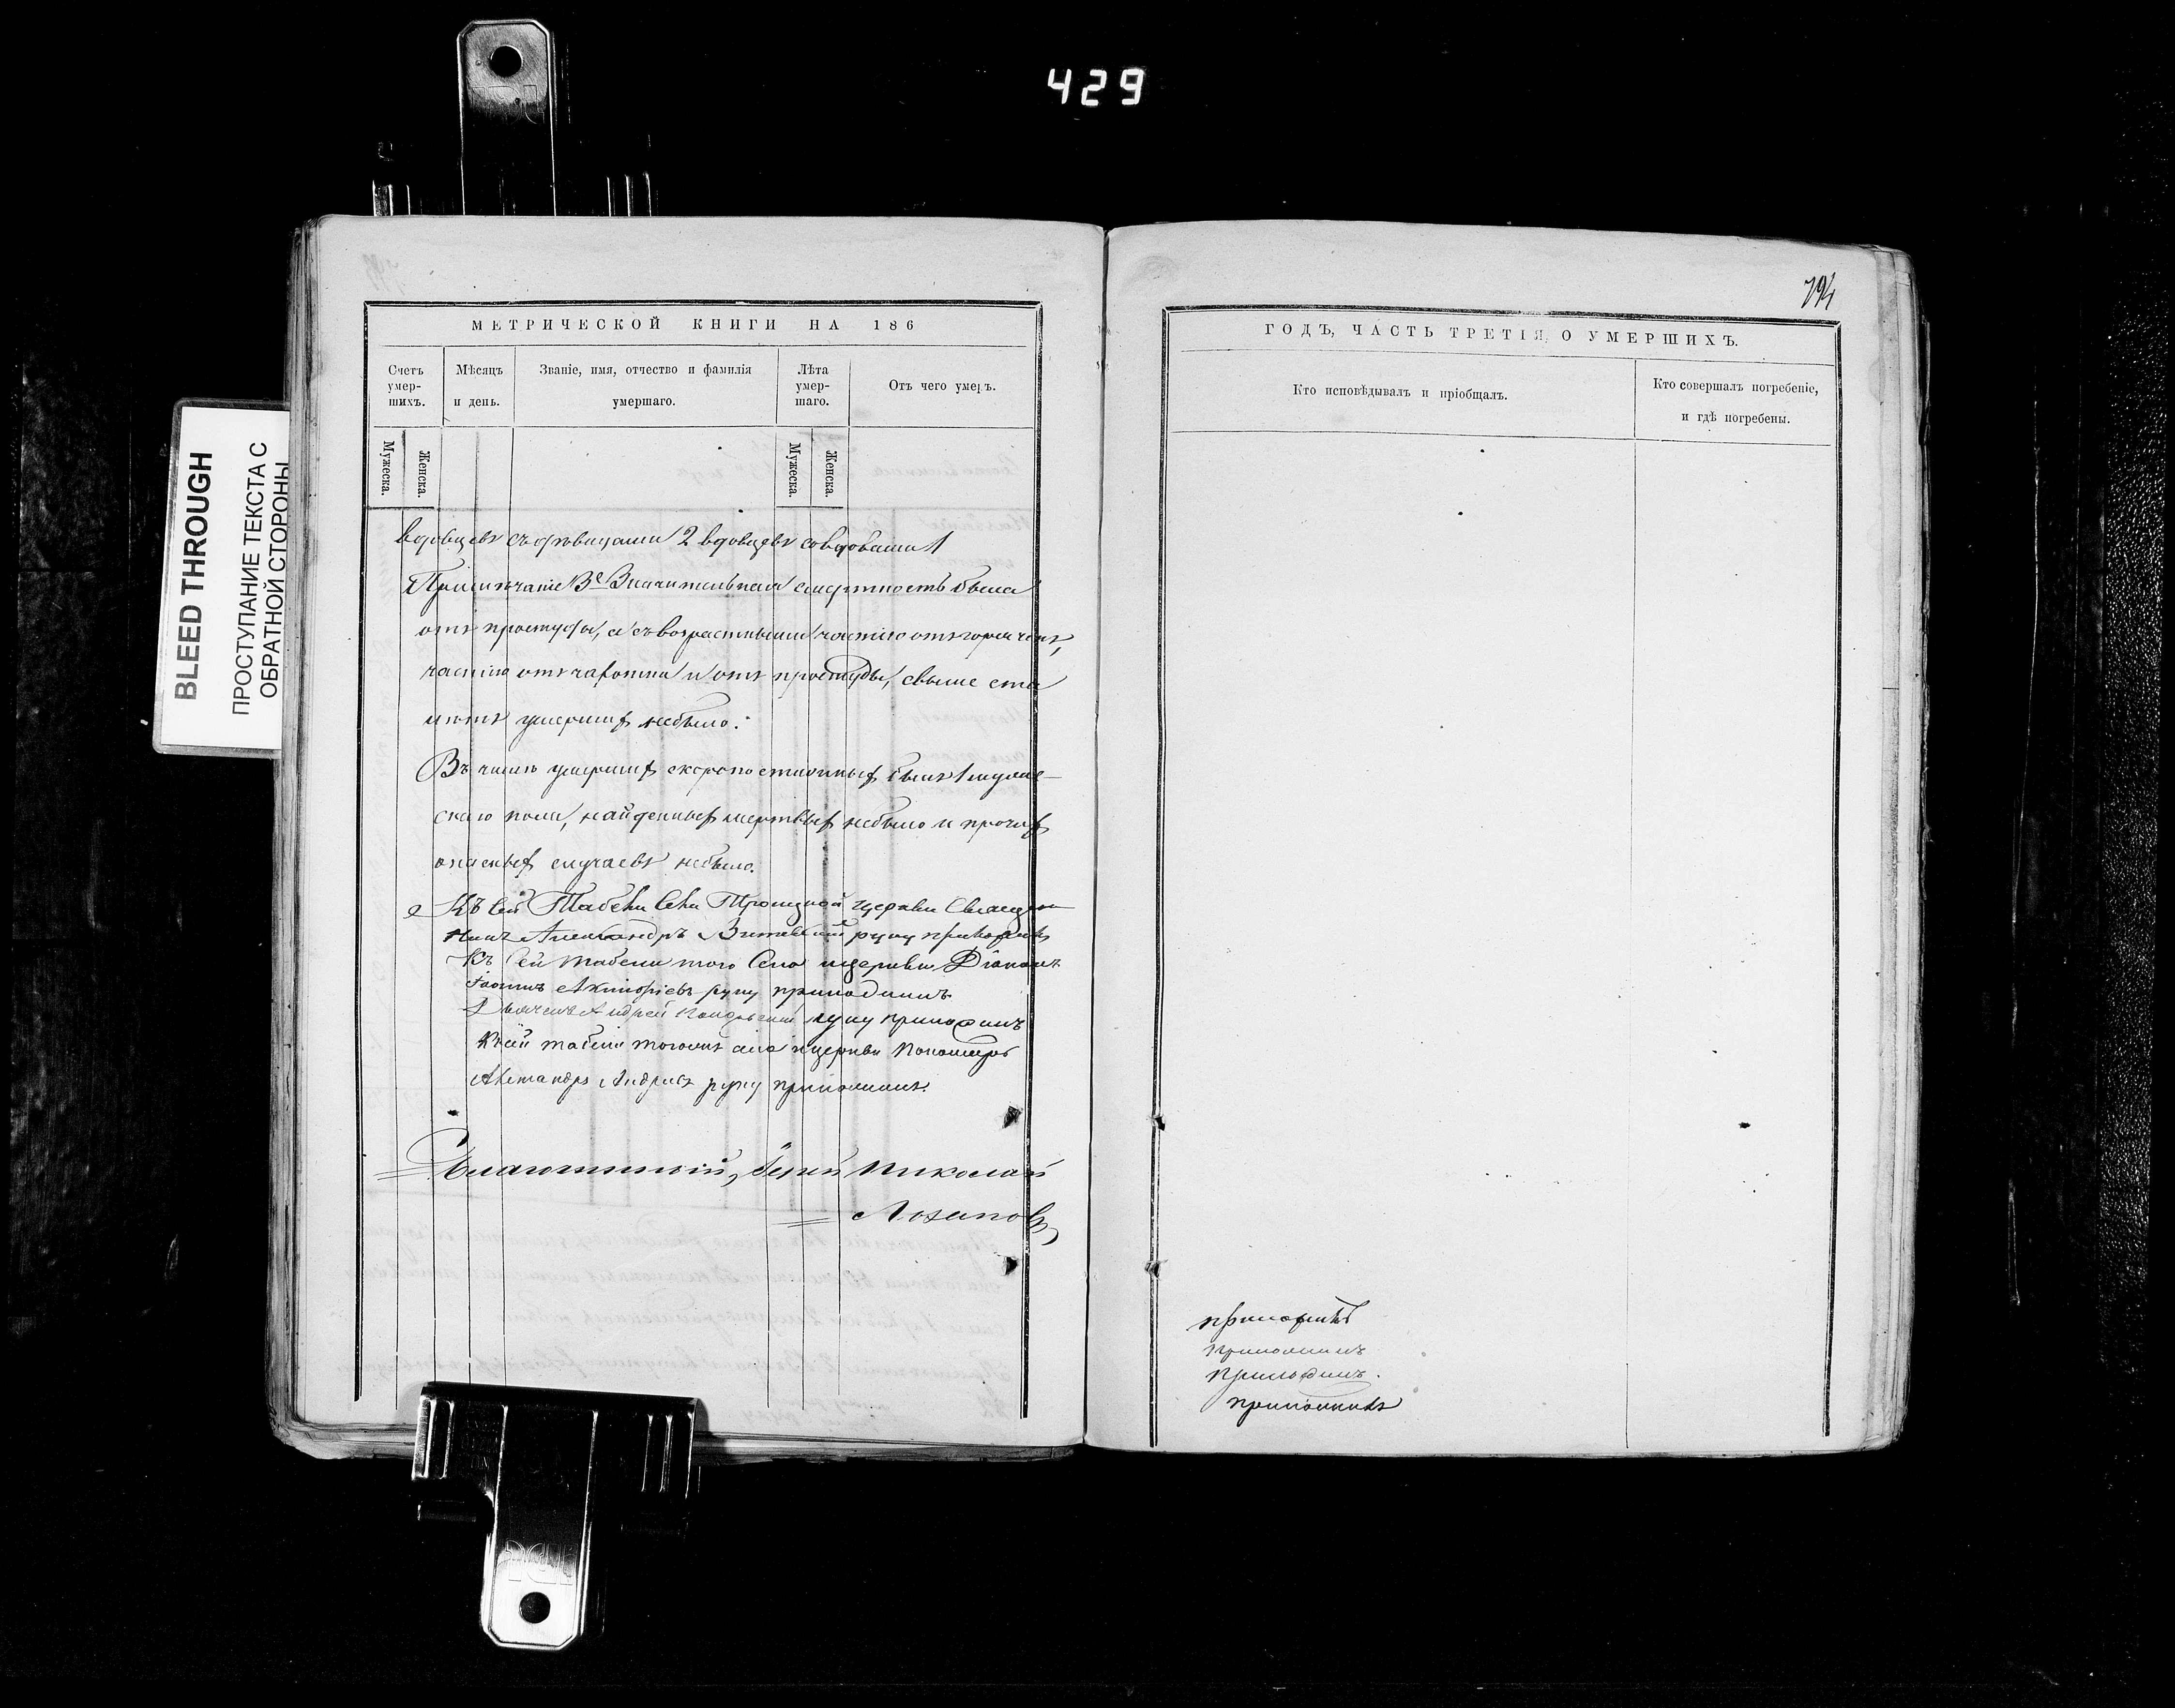 429
BLEED THROUGH
ПРОСТУПАНИЕ ТЕКСТА С
ОБРАТНОЙ СТОРОНЫ
МЕТРИЧЕСКОЙ КНИГИ НА 186
Счетъ умер-шихъ.
Мѣсяцъ и день.
Званіе, имя, отчество и фамилія умершаго.
Лѣта умер-шаго.
Отъ чего умеръ.
Мужеска.
Женска.
Мужеска.
Женска.
вдовцевъ съ дѣвицами 2 вдовцевъ со вдовами 1
Примѣчаніе 3е Значительная смертность была
отъ простуды, а съ возрастными частію отъ горячекъ,
частію отъ чахотки и отъ простуды, свыше ста
лѣтъ умершихъ небыло.
Въ числѣ умершихъ скоропостижныхъ былъ 1 муже-
скаго пола, найденныхъ мертвыхъ небыло и прочихъ
опасныхъ случаевъ небыло.
Къ сей Табели Села Троицкой церкви Священ
никъ Александръ руку приложилъ
Къ сей табели того Села церкви Діаконъ
Іоаннъ руку приложилъ
Дьячекъ Андрей руку приложилъ
Къ сей табели тогожъ села церкви Пономарь
Андреевъ руку приложилъ.
Благочинный, Іерей Николай
794
ГОДЪ, ЧАСТЬ ТРЕТІЯ, О УМЕРШИХЪ.
Кто исповѣдывалъ и пріобщалъ.
Кто совершалъ погребеніе, и гдѣ погребены.
приложилъ
приложилъ
приложилъ.
приложилъ